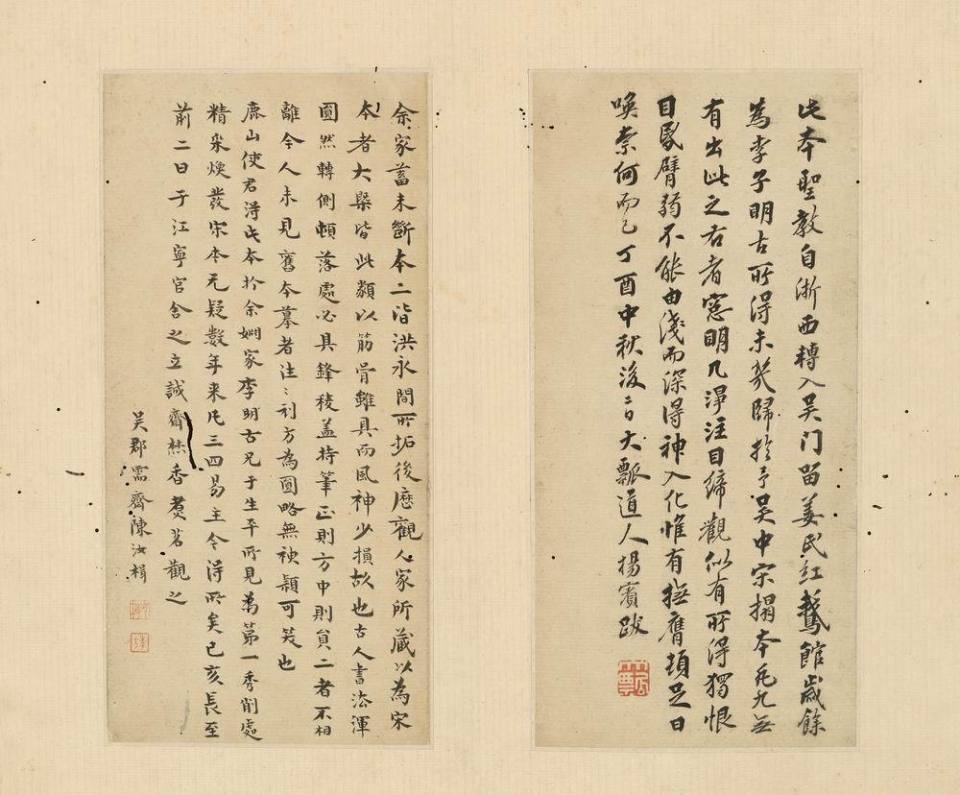 此本聖教自浙西轉入吴门留姜氏紅鵝館歲餘
為李子明古所得未幾歸於予吴中宋搨本凡九無
有出此之右者窓明几淨注目締觀似有所得獨恨
目昬臂弱不能由淺而深得神入化惟有撫膺頓足日
喚柰何而已丁酉中秋後二日大瓢道人楊賓跋
余家蓄未斷本二皆洪永間所拓後歴觀人家所藏以為宋
本者大槩皆此類以筋骨雖具而風神少損故也古人書法渾
圓然轉側頓落處必具鋒稜蓋持筆正則方中則負二者不相
離今人未見舊本摹者注〻刓方為圓略無神穎可笑也
鹿山使君淂此本於余姻家李明古兄于生平所見為第一秀削處
精采煥發宋本无疑數年来凡三四易主今淂所矣已亥長至
前二日于江寧官舍之立誠齋焚香煑茗觀之
吴郡需齋陳汝楫